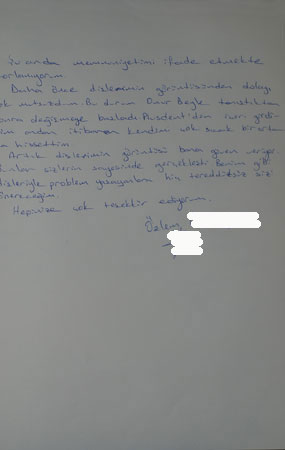 Şu anda memnuniyetimi ifade etmekte
zorlanıyorum.
Daha önce dişlerimin görüntüsünden dolayı
çok mutsuzdum. Bu durum Onur Bey'le tanıştıktan
sonra değişmeye başladı. Prusdent'den içeri girdi-
ğim andan itibaren kendimi çok sıcak bir ortam
da hissettim.
Artık dişlerimin görüntüsü bana güven veriyor.
sizlerin sayesinde gerçekleşti. Benim gibi
dişleriyle problem yaşayanlara hiç tereddütsüz sizi
Hepinize çok teşekkür ediyorum.
Özlem